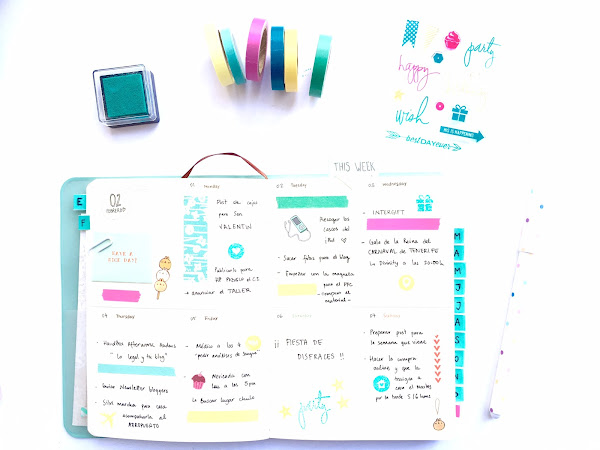 party
happy
wish
THIS IS HAPPENING
#bestDAYever
THIS WEEK
E
F
02
HAVE A
NICE DAY!
01 Monday
Post de cajas
para San
VALENTIN
Publicarlo para
+ anunciar el TALLER
02 Tuesday
Recoger los
cascos del
iPod
- Sacar fotos para el blog.
- Empezar con la maqueta
para el
- comprar el
material -
03 Wednesday
- INTERGIFT
- Gala de la Reina del
CARNAVAL DE TENERIFE
La Divinity a las 20:00h
04 Thursday
- Handbox Afterwork
"Lo legal y tu blog"
- Enviar Newsletter bloggers
- Silvi marcha para casa
acompañarla al
AEROPUERTO
05 Friday
- Médico a las 9
"pedir análisis de sangre"
- Merienda con
las a las 5 pm
Buscar lugar chulo
06
¡¡ FIESTA DE
DISFRACES !!
party
07
- Preparar post para
la semana que viene
- Hacer la compra
online y que la
traigan a
casa el martes
por la tarde
M
A
M
J
J
A
S
O
N
D